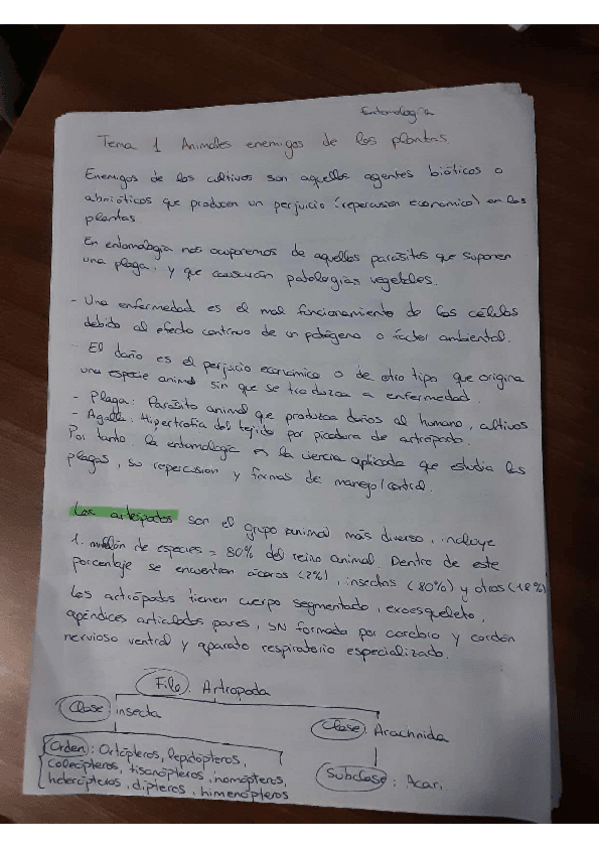 Entomología
Tema 1 Animales enemigos de las plantas.
Enemigos de los cultivos son aquellos agentes bióticos o
abnióticos que producen un perjuicio (repercusion economico) en las
plantas.
En entomología nos ocuparemos de aquellos parásitos que suponen
una plaga, y que causarán patologías vegetales.
- Una enfermedad es el mal funcionamiento de las células
debido al efecto continuo de un patógeno o factor ambiental.
- El daño es el perjuicio económico o de otro tipo que origina
una especie animal sin que se traduzca a enfermedad.
- Plaga: Parásito animal que produzca daños al humano, cultivos
- Agalla: Hipertrofia del tejido por picadura de artrópodo.
Por tanto, la entomología es la ciencia aplicada que estudia las
plagas, su repercusion y formas de manejo/control.
Los artrópodos son el grupo animal más diverso, incluye
1. millón de especies = 80% del reino animal. Dentro de este
porcentaje se encuentran ácaros (2%), insectos (80%) y otros (18%)
Los artrópodos tienen cuerpo segmentado, exoesqueleto,
apéndices articulados pares, SN formado por cerebro y cordón
nervioso ventral y aparato respiratorio especializado.
Filo: Artropoda
Clase: insecta
Clase: Arachnida
Orden: Ortópteros, lepidópteros,
coleópteros, tisanópteros, homópteros,
heterópteros, dípteros, himenópteros
Subclase: Acari